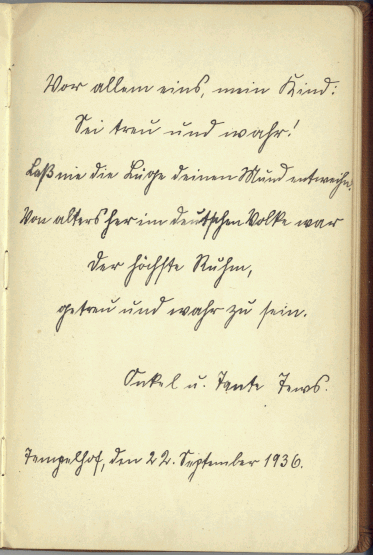 Vor allem eins, mein Kind:
Sei treu und wahr!
Laß nie die Lüge deinen Mund entweihn.
Von alters her im deutschen Volke war
Der höchste Ruhm,
getreu und wahr zu sein.
Onkel u. Tante Tews.
Tempelhof, den 22. September 1936.